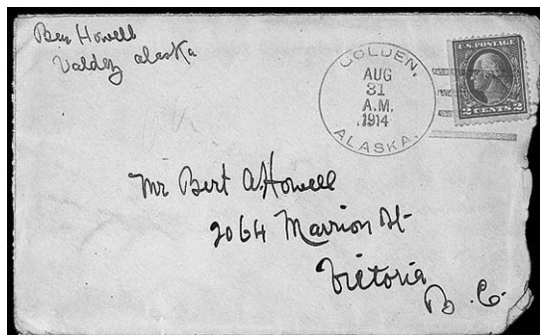 Ben Howell
Valdez alaska
GOLDEN,
AUG
31
A.M.
1914
ALASKA.
U.S. POSTAGE
2 CENTS 2
Mr Bert A. Howell
2064 Marrion St-
Victoria
B.C.